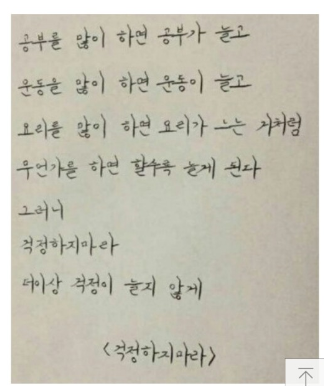 공부를 많이 하면 공부가 늘고
운동을 많이 하면 운동이 늘고
요리를 많이 하면 요리가 느는 거처럼
무언가를 하면 할수록 늘게 된다
그러니
걱정하지마라
더이상 걱정이 늘지 않게
<걱정하지마라>